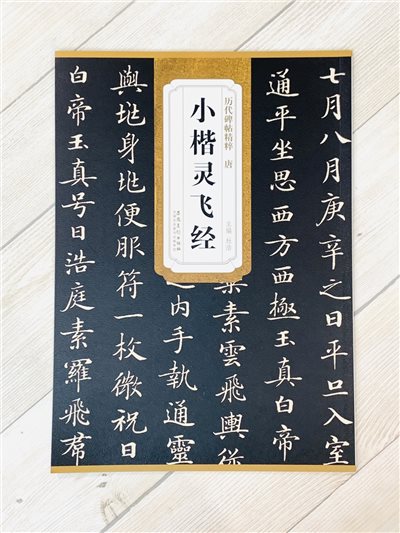 七月八月庚辛之日平旦入室
通平坐思西方西極玉真白帝
素雲飛輿從
之内手執通靈
與兆身兆便服符一枚微祝曰
白帝玉真号曰浩庭素羅飛羣
历代碑帖精粹 唐
小楷灵飞经
主编 杜浩